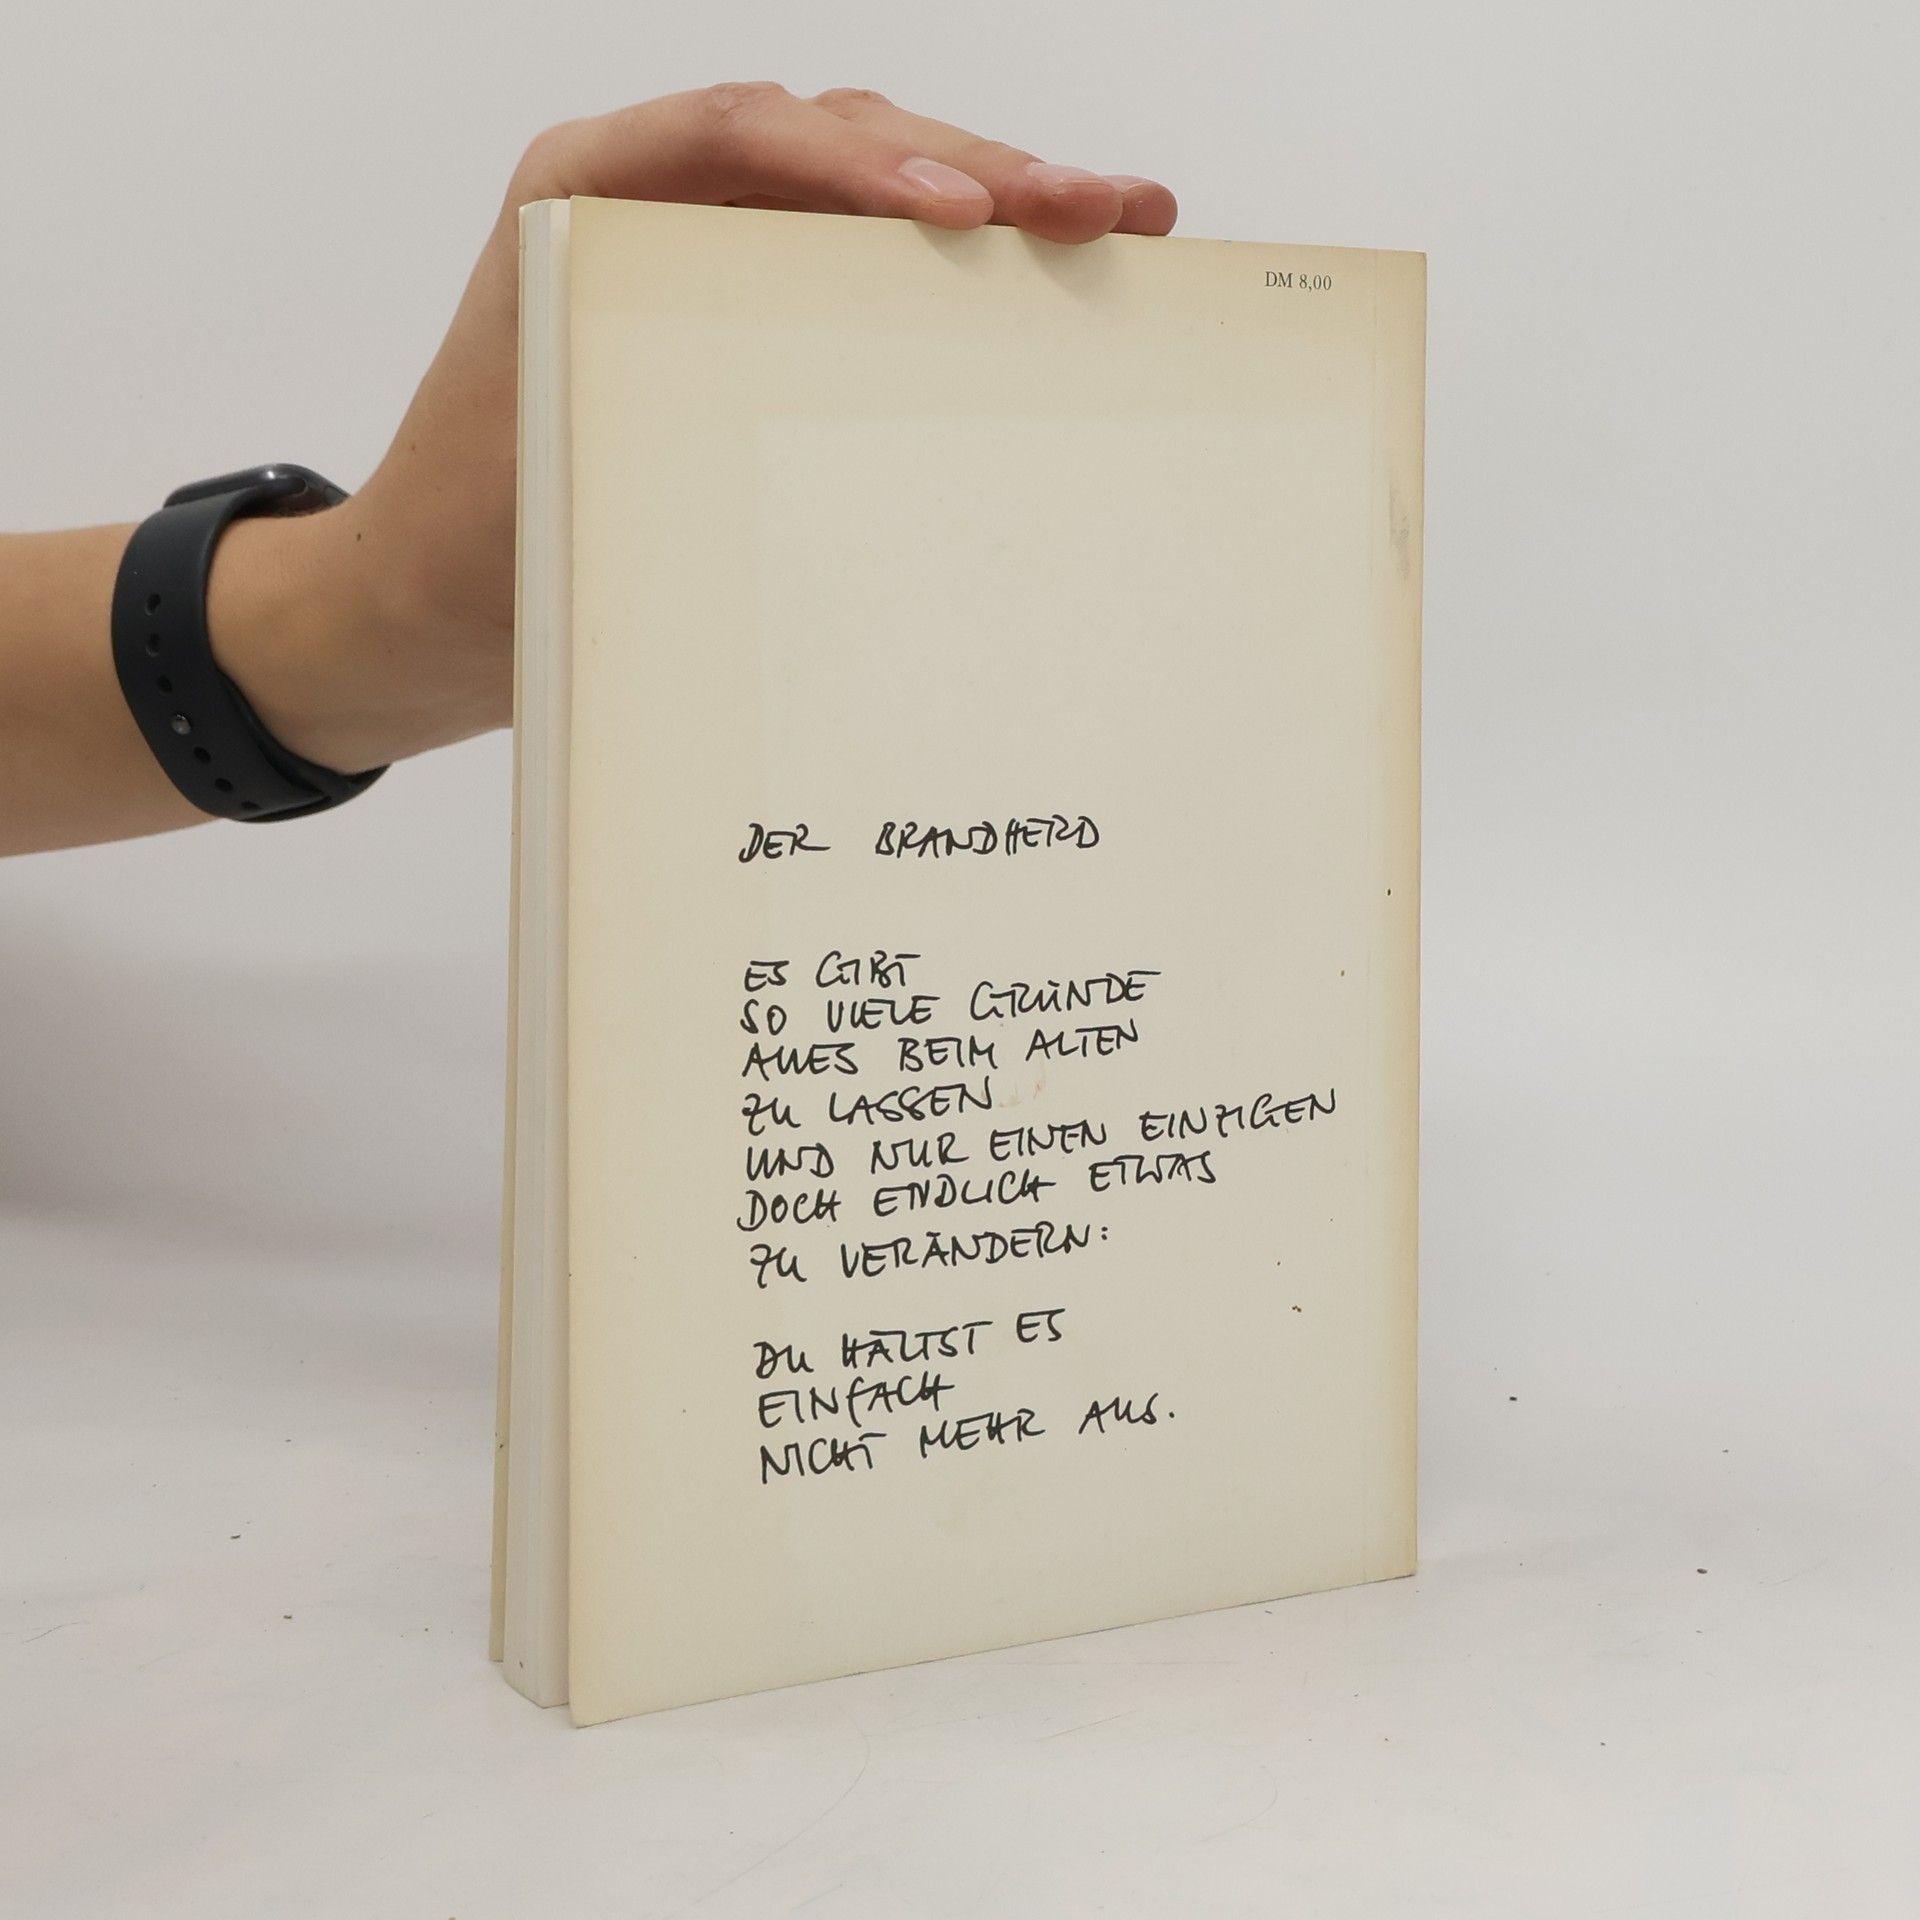 DM 8,00
DER BRANDHERD
ES GIBT
SO VIELE GRÜNDE
ALLES BEIM ALTEN
ZU LASSEN
UND NUR EINEN EINZIGEN
DOCH ENDLICH ETWAS
ZU VERÄNDERN:
DU HÄLTST ES
EINFACH
NICHT MEHR AUS.